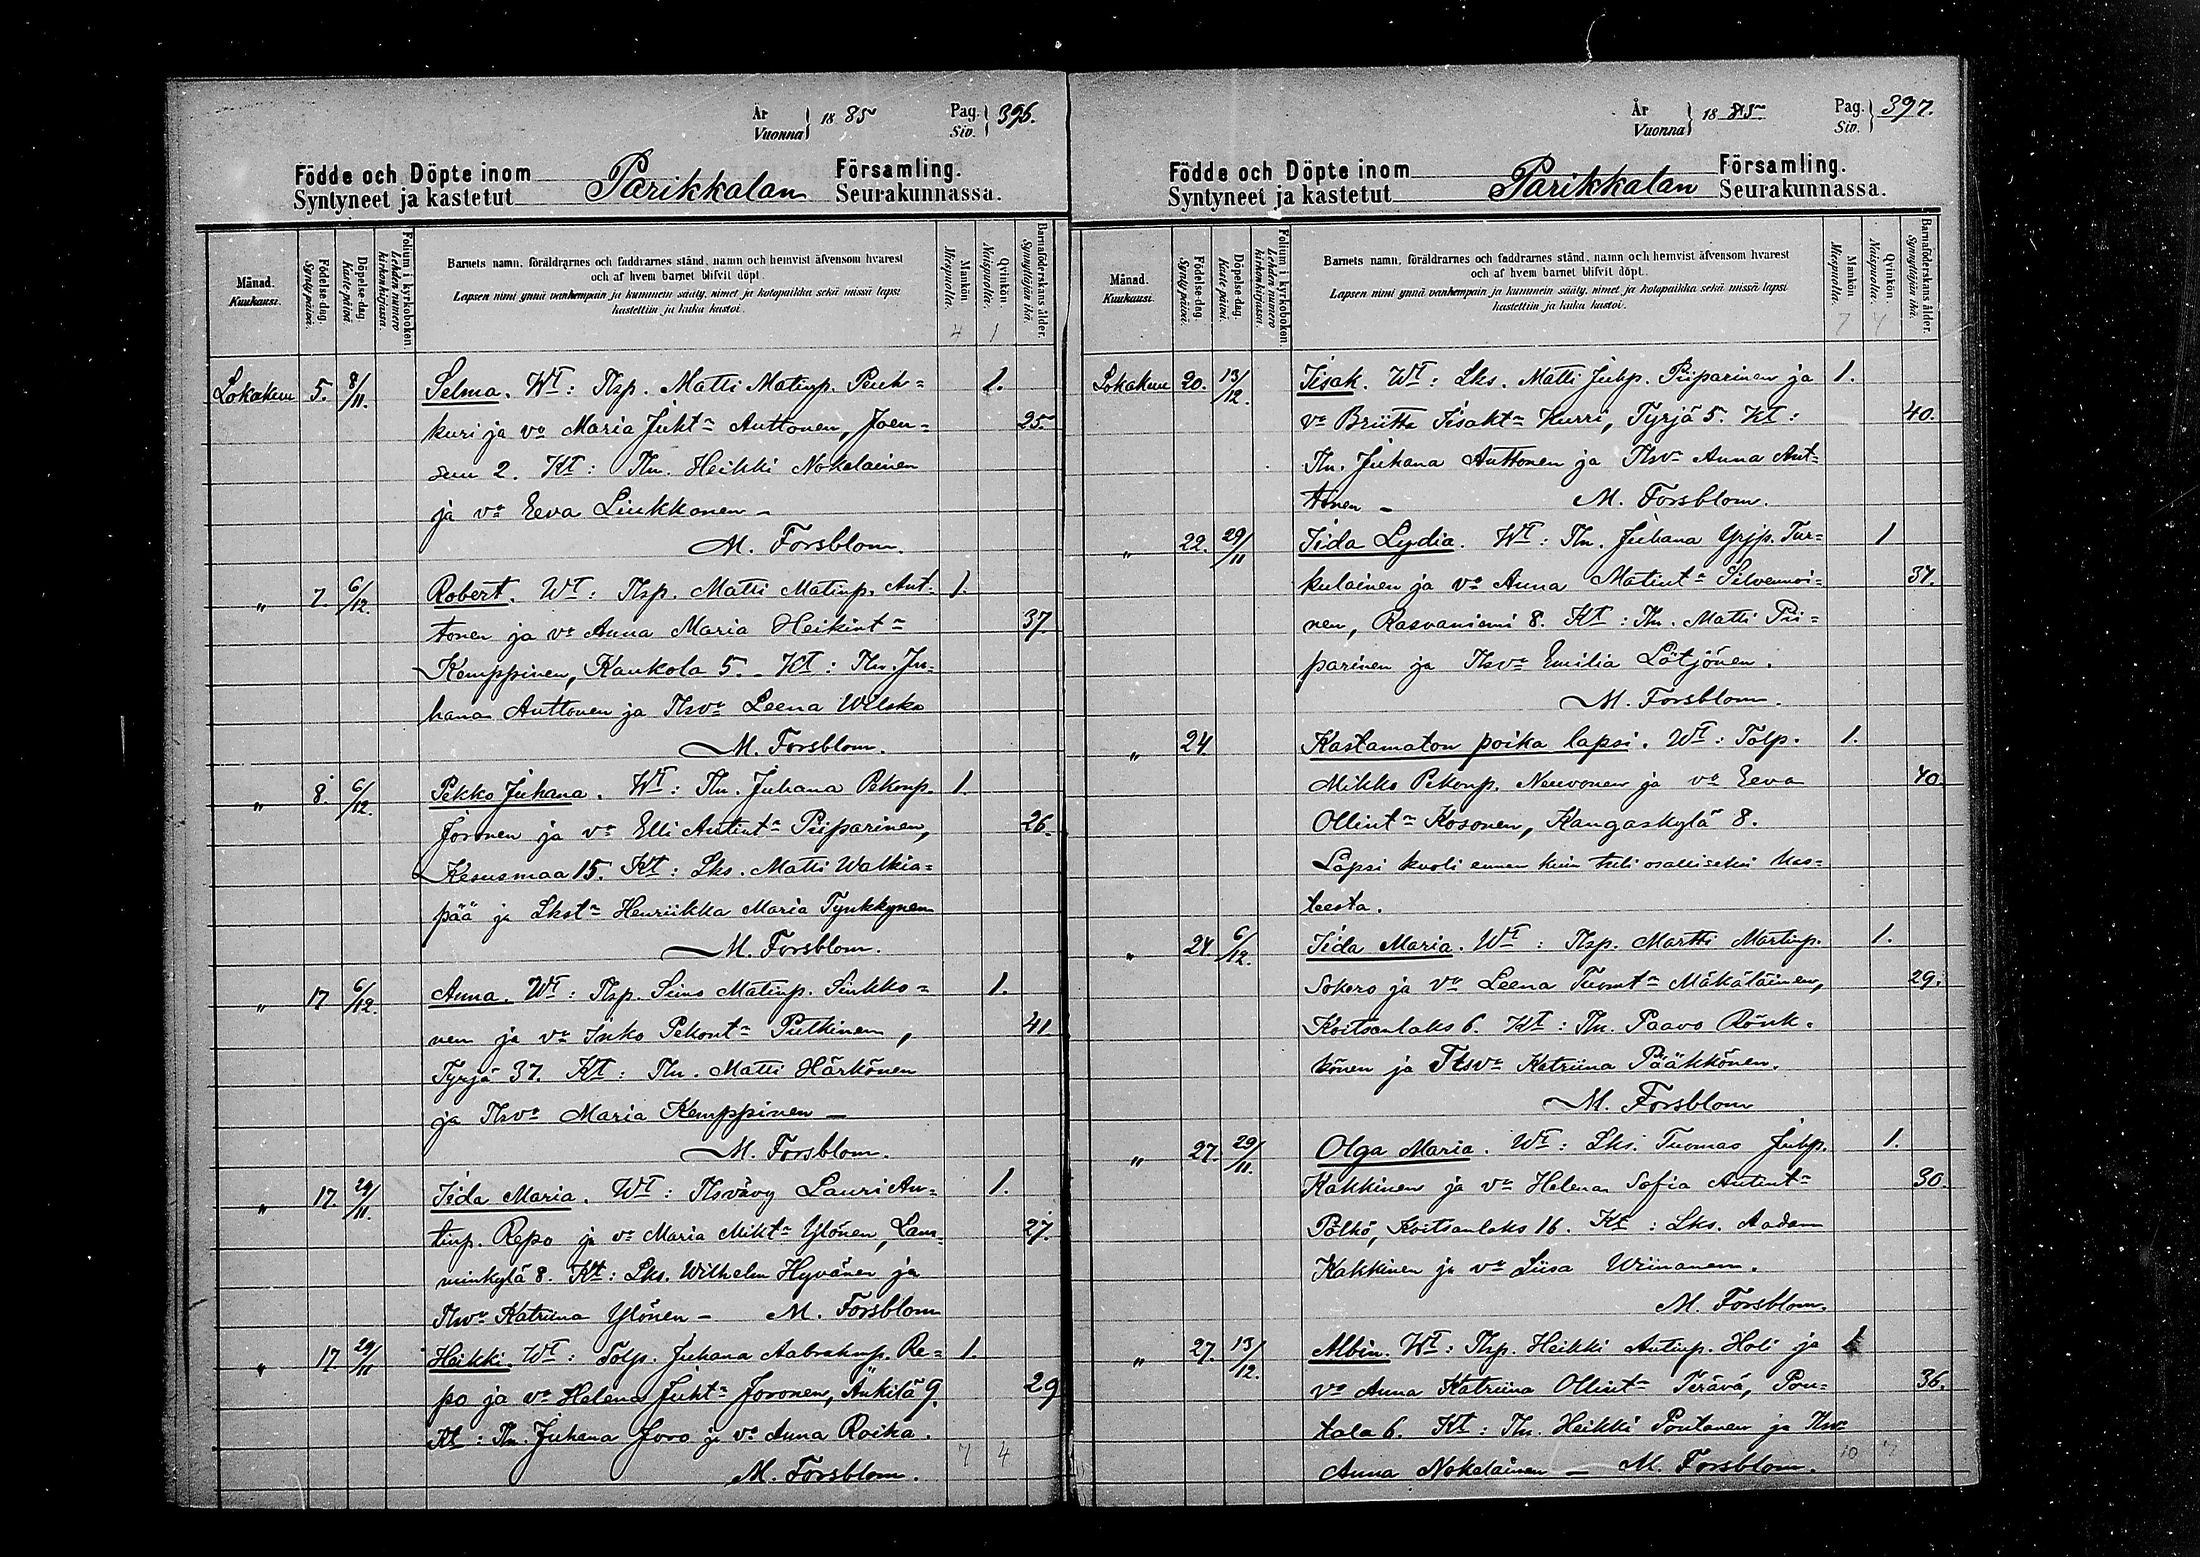 År
Vuonna } 1885 Pag.
Siv. } 396.
Födde och Döpte inom Parikkalan Församling.
Syntyneet ja kastetut Seurakunnassa.
Månad. Kuukausi.
Födelse-dag. Syntypäivä.
Döpelse-dag. Kaste-päivä.
Folium i kyrkoboken Lehden numero kirkonkirjassa.
Barnets namn, föräldrarnes och faddrarnes stånd, namn och hemvist äfvensom hvarest
och af hvem barnet blifvit döpt.
Lapsen nimi ynnä vanhempain ja kummein sääty, nimet ja kotopaikka sekä missä lapsi
kastettiin ja kuka kastoi.
Mankön Miespuolta. 4
Qvinkön. Naispuolta. 1
Barnaföderskans ålder. Synnyttäjän ikä.
Lokakuu 5. 8/11. Selma. Wt: Tlsp. Matti Matinp. Peuh= 1.
kuri ja vo Maria Juht:n Auttonen, Joen= 25
suu 2. Kt: Tln. Heikki Nokelainen
ja vo Eeva Liukkonen –
M. Forsblom.
„ 7. 6/12. Robert. Wt: Tlsp. Matti Matinp. Aut= 1.
tonen ja vo Anna Maria Heikint:n 37.
Kemppinen, Kaukola 5. Kt: Tln. Ju=
hana Auttonen ja Tlsvo Leena Wilska
M. Forsblom.
„ 8. 6/12. Pekko Juhana. Wt: Tln. Juhana Pekonp. 1.
Joronen ja vo Elli Antint:n Piiparinen, 26.
Kesusmaa 15. Kt: Lks. Matti Walkia=
pää ja Lkst:n Henriikka Maria Tynkkynen
M. Forsblom.
„ 17 6/12. Anna. Wt: Tlsp. Simo Matinp. Sinkko= 1.
nen ja vo Inko Pekont:n Putkinen, 41
Tyrjä 37. Kt: Tln. Matti Härkönen
ja Tlsvo Maria Kemppinen –
M. Forsblom.
„ 17. 29/11. Iida Maria. Wt: Tlsvävy Lauri An= 1.
tinp. Repo ja vo Maria Mikt:n Ylönen, Lam= 27.
minkylä 8. Kt: Lks. Wilhelm Hyvönen ja
Tlsvo Katriina Ylönen – M. Forsblom
„ 17 29/11 Heikki. Wt: Tolp. Juhana Aabrahmp. Re= 1.
po ja vo Helena Juht:n Joronen, Änkilä 9. 29
Kt: Tln. Juhana Joro ja vo Anna Roika.
M. Forsblom. 7 4
År
Vuonna } 1885 Pag.
Siv. } 397.
Födde och Döpte inom Parikkalan Församling.
Syntyneet ja kastetut Seurakunnassa.
Månad. Kuukausi.
Födelse-dag. Syntypäivä.
Döpelse-dag. Kaste-päivä.
Folium i kyrkoboken Lehden numero kirkonkirjassa.
Barnets namn, föräldrarnes och faddrarnes stånd, namn och hemvist äfvensom hvarest
och af hvem barnet blifvit döpt.
Lapsen nimi ynnä vanhempain ja kummein sääty, nimet ja kotopaikka sekä missä lapsi
kastettiin ja kuka kastoi.
Mankön Miespuolta. 7
Qvinkön. Naispuolta. 4
Barnaföderskans ålder. Synnyttäjän ikä.
Lokakuu 20. 13/12. Iisak. Wt: Lks. Matti Juhp. Piiparinen ja 1.
vo Briitta Iisakt:n Kurri, Tyrjä 5. Kt: 40.
Tln. Juhana Auttonen ja Tlsvo Anna Aut=
tonen – M. Forsblom.
„ 22. 29/11 Iida Lydia. Wt: Tln. Juhana Yrjp. Tur= 1
kulainen ja vo Anna Matint:n Silvennoi= 37.
nen, Rasvaniemi 8. Kt: Tln. Matti Pii=
parinen ja Tlsvo Emilia Lötjönen.
M. Forsblom.
„ 24 Kastamaton poika lapsi. Wt: Tolp. 1.
Mikko Pekonp. Neuvonen ja vo Eeva 40.
Ollint:n Kosonen, Kangaskylä 8.
Lapsi kuoli ennen kuin tuli osalliseksi kas=
teesta.
„ 24. 6/12. Iida Maria. Wt: Tlsp. Martti Martinp. 1.
Sokero ja vo Leena Tuomt:n Mäkäläinen, 29.
Koitsanlaks 6. Kt: Tln. Paavo Rönk=
könen ja Tlsvo Katriina Pääkkönen.
M. Forsblom
„ 27. 29/11. Olga Maria. Wt: Lks. Tuomas Juhp. 1.
Kakkinen ja vo Helena Sofia Antint:n 30.
Pölkö, Koitsanlaks 16. Kt: Lks. Aadam
Kakkinen ja vo Liisa Wrinanen.
M. Forsblom.
„ 27. 13/12. Albin. Wt: Tlsp. Heikki Antinp. Holi ja 1
vo Anna Katriina Ollint:n Terävä, Pon= 36.
tala 6. Kt: Tln. Heikki Pontanen ja Tlsvo
Anna Nokelainen – M. Forsblom. 10 7